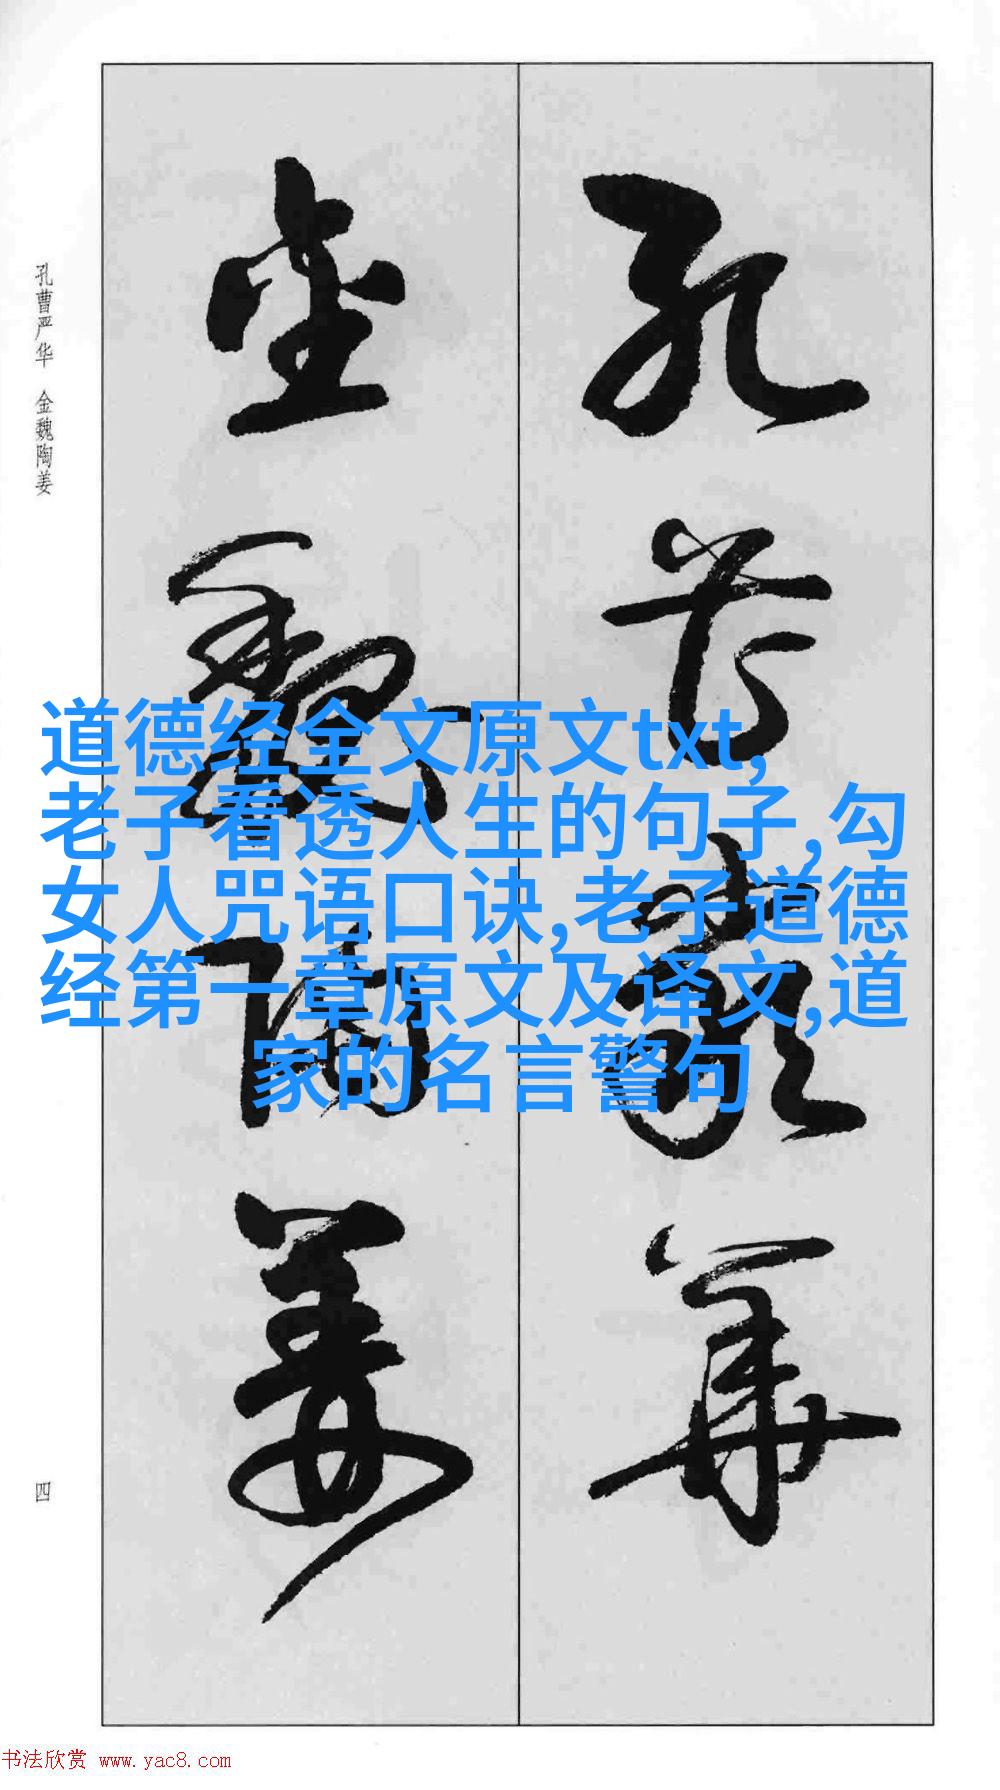 孔曹严华 金魏陶姜
孔曹严华
金魏陶姜
道德经全文原文txt,
老子看透人生的句子,勾
女人咒语口诀,老子道德
经第一章原文及译文,道
家的名言警句
四
书法欣赏 www.yac8.com